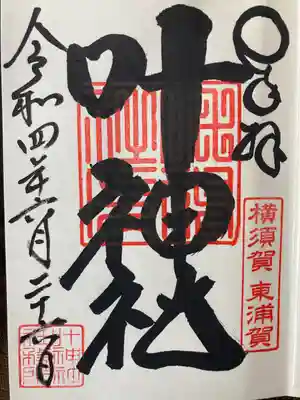 奉拝
横須賀 東浦賀
叶神社
令和四年六月二十六日